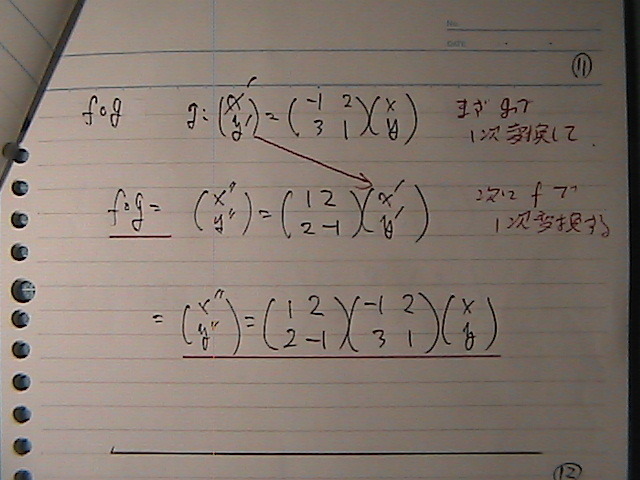 No.
DATE
⑪
f∘g g: (x' y') = (-1 2 3 1)(x y) まず gで
1次変換して
f∘g = (x'' y'') = (1 2 2 -1)(x' y') 次に f で
1次変換する
= (x'' y'') = (1 2 2 -1)(-1 2 3 1)(x y)
⑫